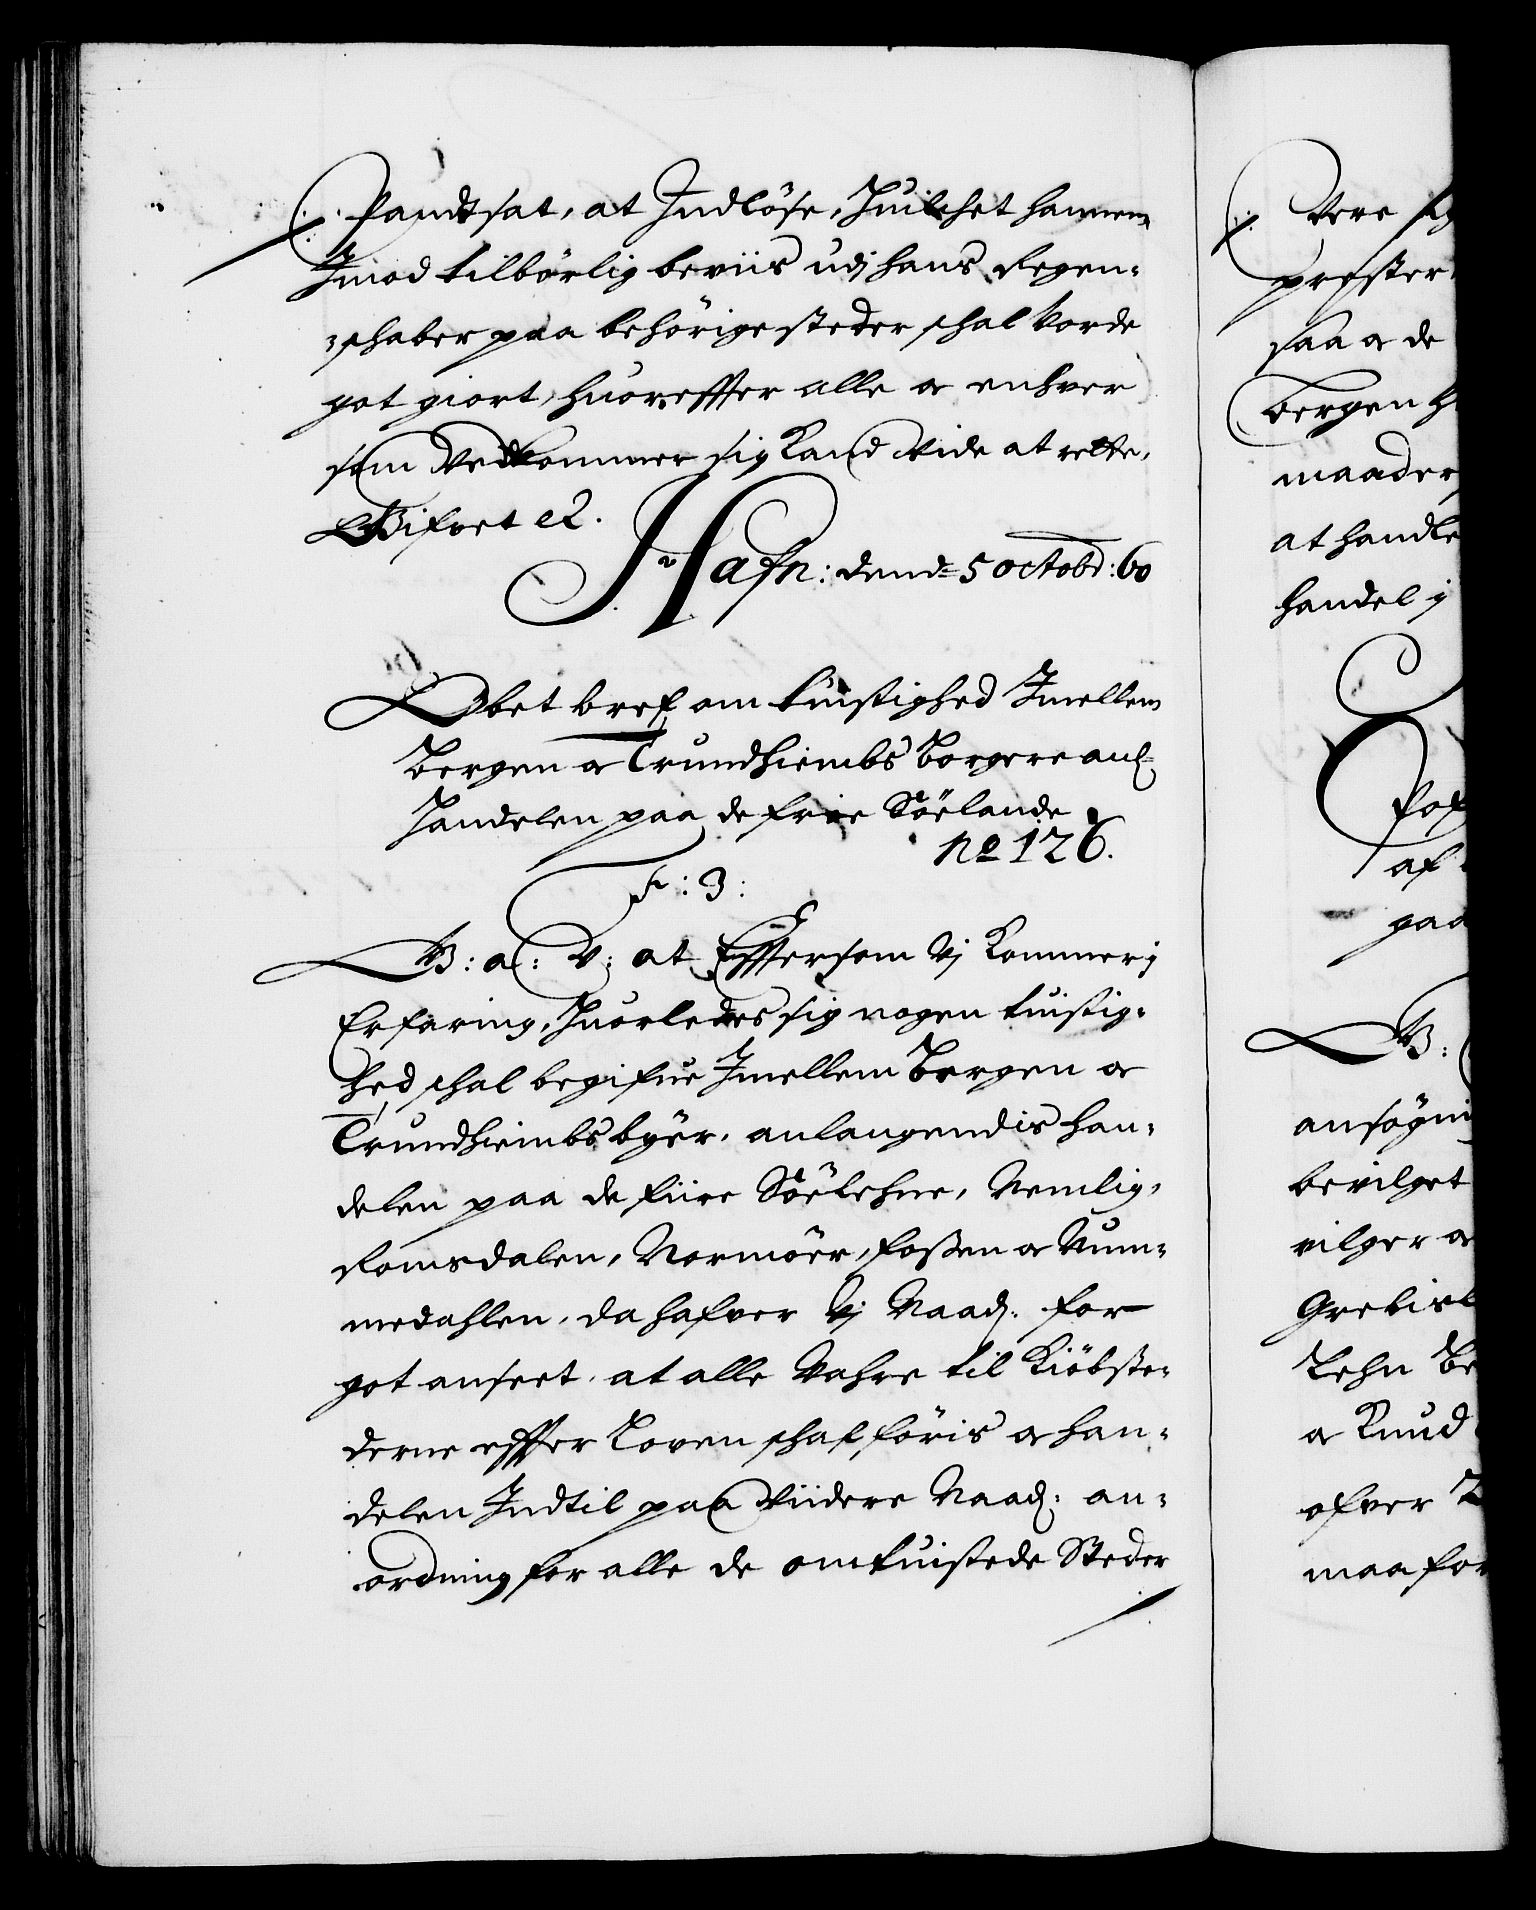 Pandtsat, at Indlöse, Huilchet hannem
Imod tilbörlig beviis udj hans Regen-
schaber paa behörige steder schal vorde
got giort, huoreffter alle oc enhver
som vedkommer sig kand vide at rette,
Gifvet etc.
Hafn: dend 5 octobr: 60
Obet bref om tuistighed Imellem
Bergen oc Trundhiembs Borgere anl
Handelen paa de frie Söelande
No 126.
F: 3:
G: a: V: at Efftersom Vj kommer j
Erfaring, Huorledes sig nogen tuistig-
hed schal begifve Imellem Bergen oc
Trundhiembs byer, anlangendis han-
delen paa de fiire Söelehne, Nemlig,
Romsdalen, Normöer, Foßen oc Num-
medahlen, da hafver Vj Naad: for
got anseet, at alle Vahre til Kiöbste-
derne effter Loven schal föris oc han-
delen Indtil paa viidere Naad: an-
ordning for alle de omtuistede Steder
vere sig
prester
saa oc de
Bergen h
maader
at handle
handel j
Pos
af
gaa
G:
ansögni
bevilget
vilger oc
Grebist
Lehn Be
oc Knud
ofver
maa for